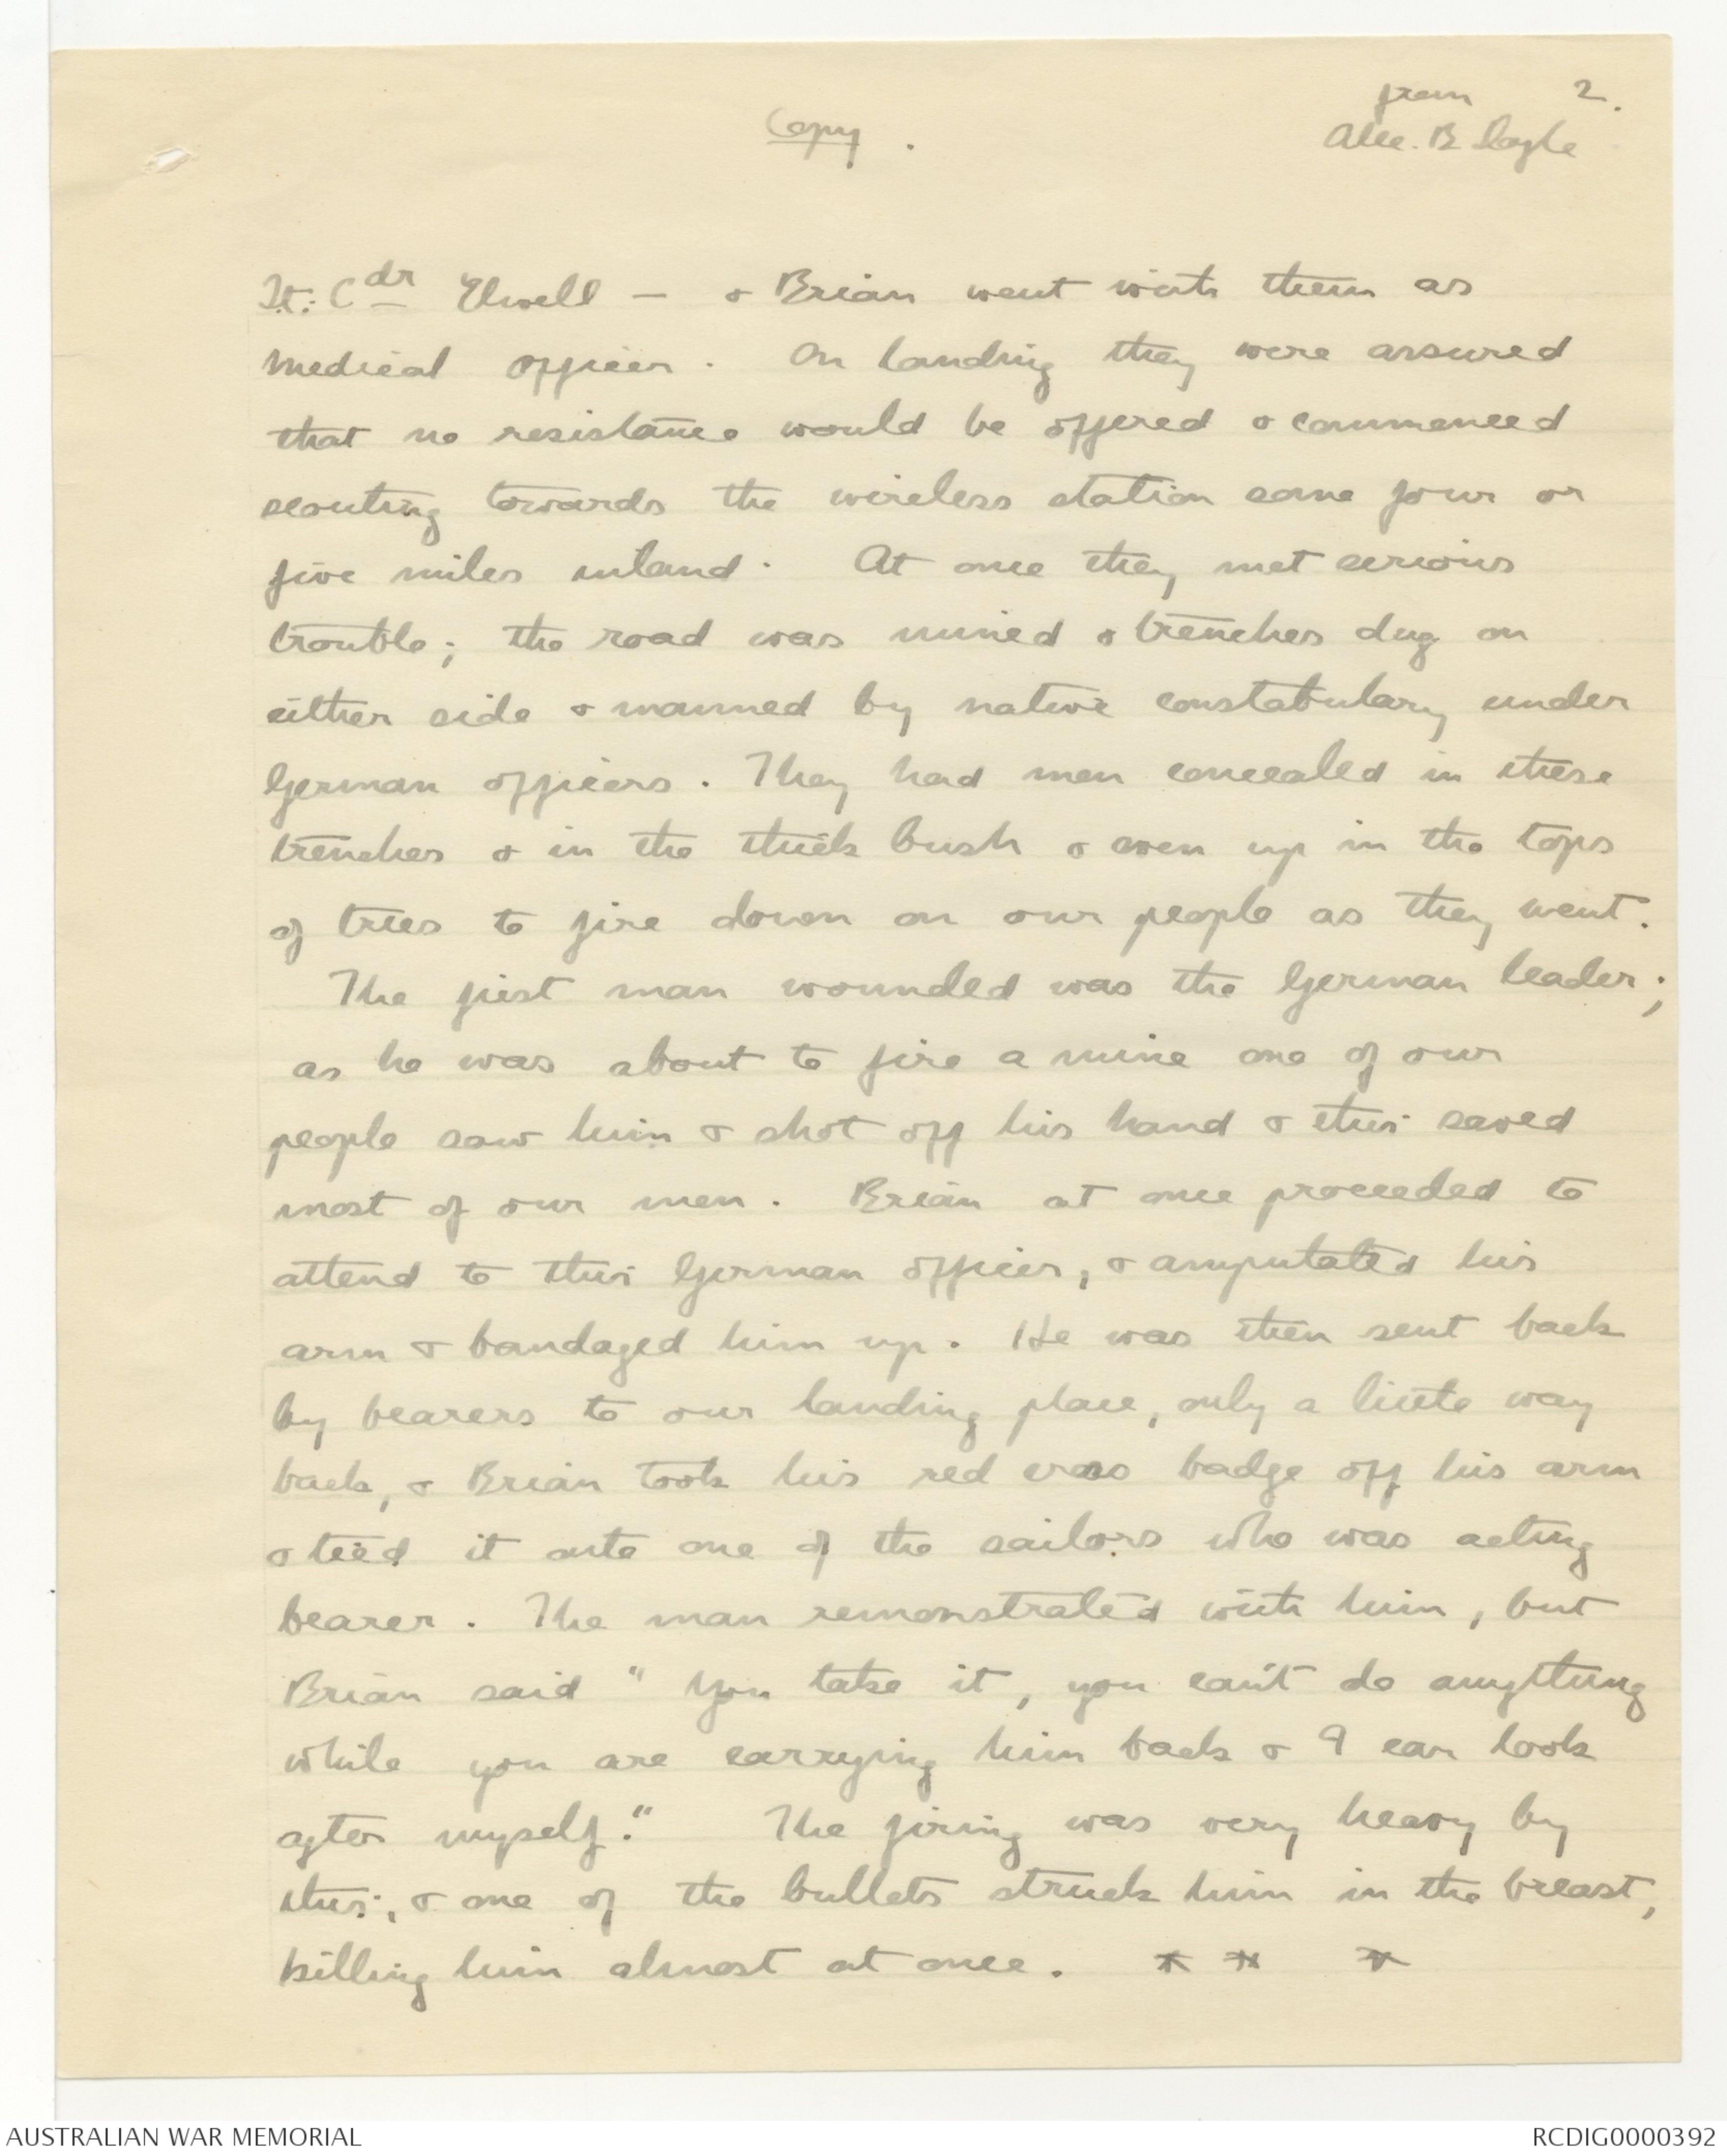 from 2.
Copy.
Alec. B Doyle
Lt: Cdr Elwell - & Brian went with them as
medical officer. On landing they were assured
that no resistance would be offered & commenced
scouting towards the wireless station some four or
five miles inland. At once they met serious
trouble; the road was mined & trenches dug on
either side & manned by native constabulary under
German officers. They had men concealed in these
trenches & in the thick bush & even up in the tops
of trees to fire down on our people as they went.
The first man wounded was the German leader;
as he was about to fire a mine one of our
people saw him & shot off his hand & this saved
most of our men. Brian at once proceeded to
attend to this German officer, & amputated his
arm & bandaged him up. He was then sent back
by bearers to our landing place, only a little way
back, & Brian took his red cross badge off his arm
& tied it onto one of the sailors who was acting
bearer. The man remonstrated with him, but
Brian said "You take it, you can't do anything
while you are carrying him back & I can look
after myself." The firing was very heavy by
this, & one of the bullets struck him in the breast,
killing him almost at once. * * *
AUSTRALIAN WAR MEMORIAL
RCDIG0000392